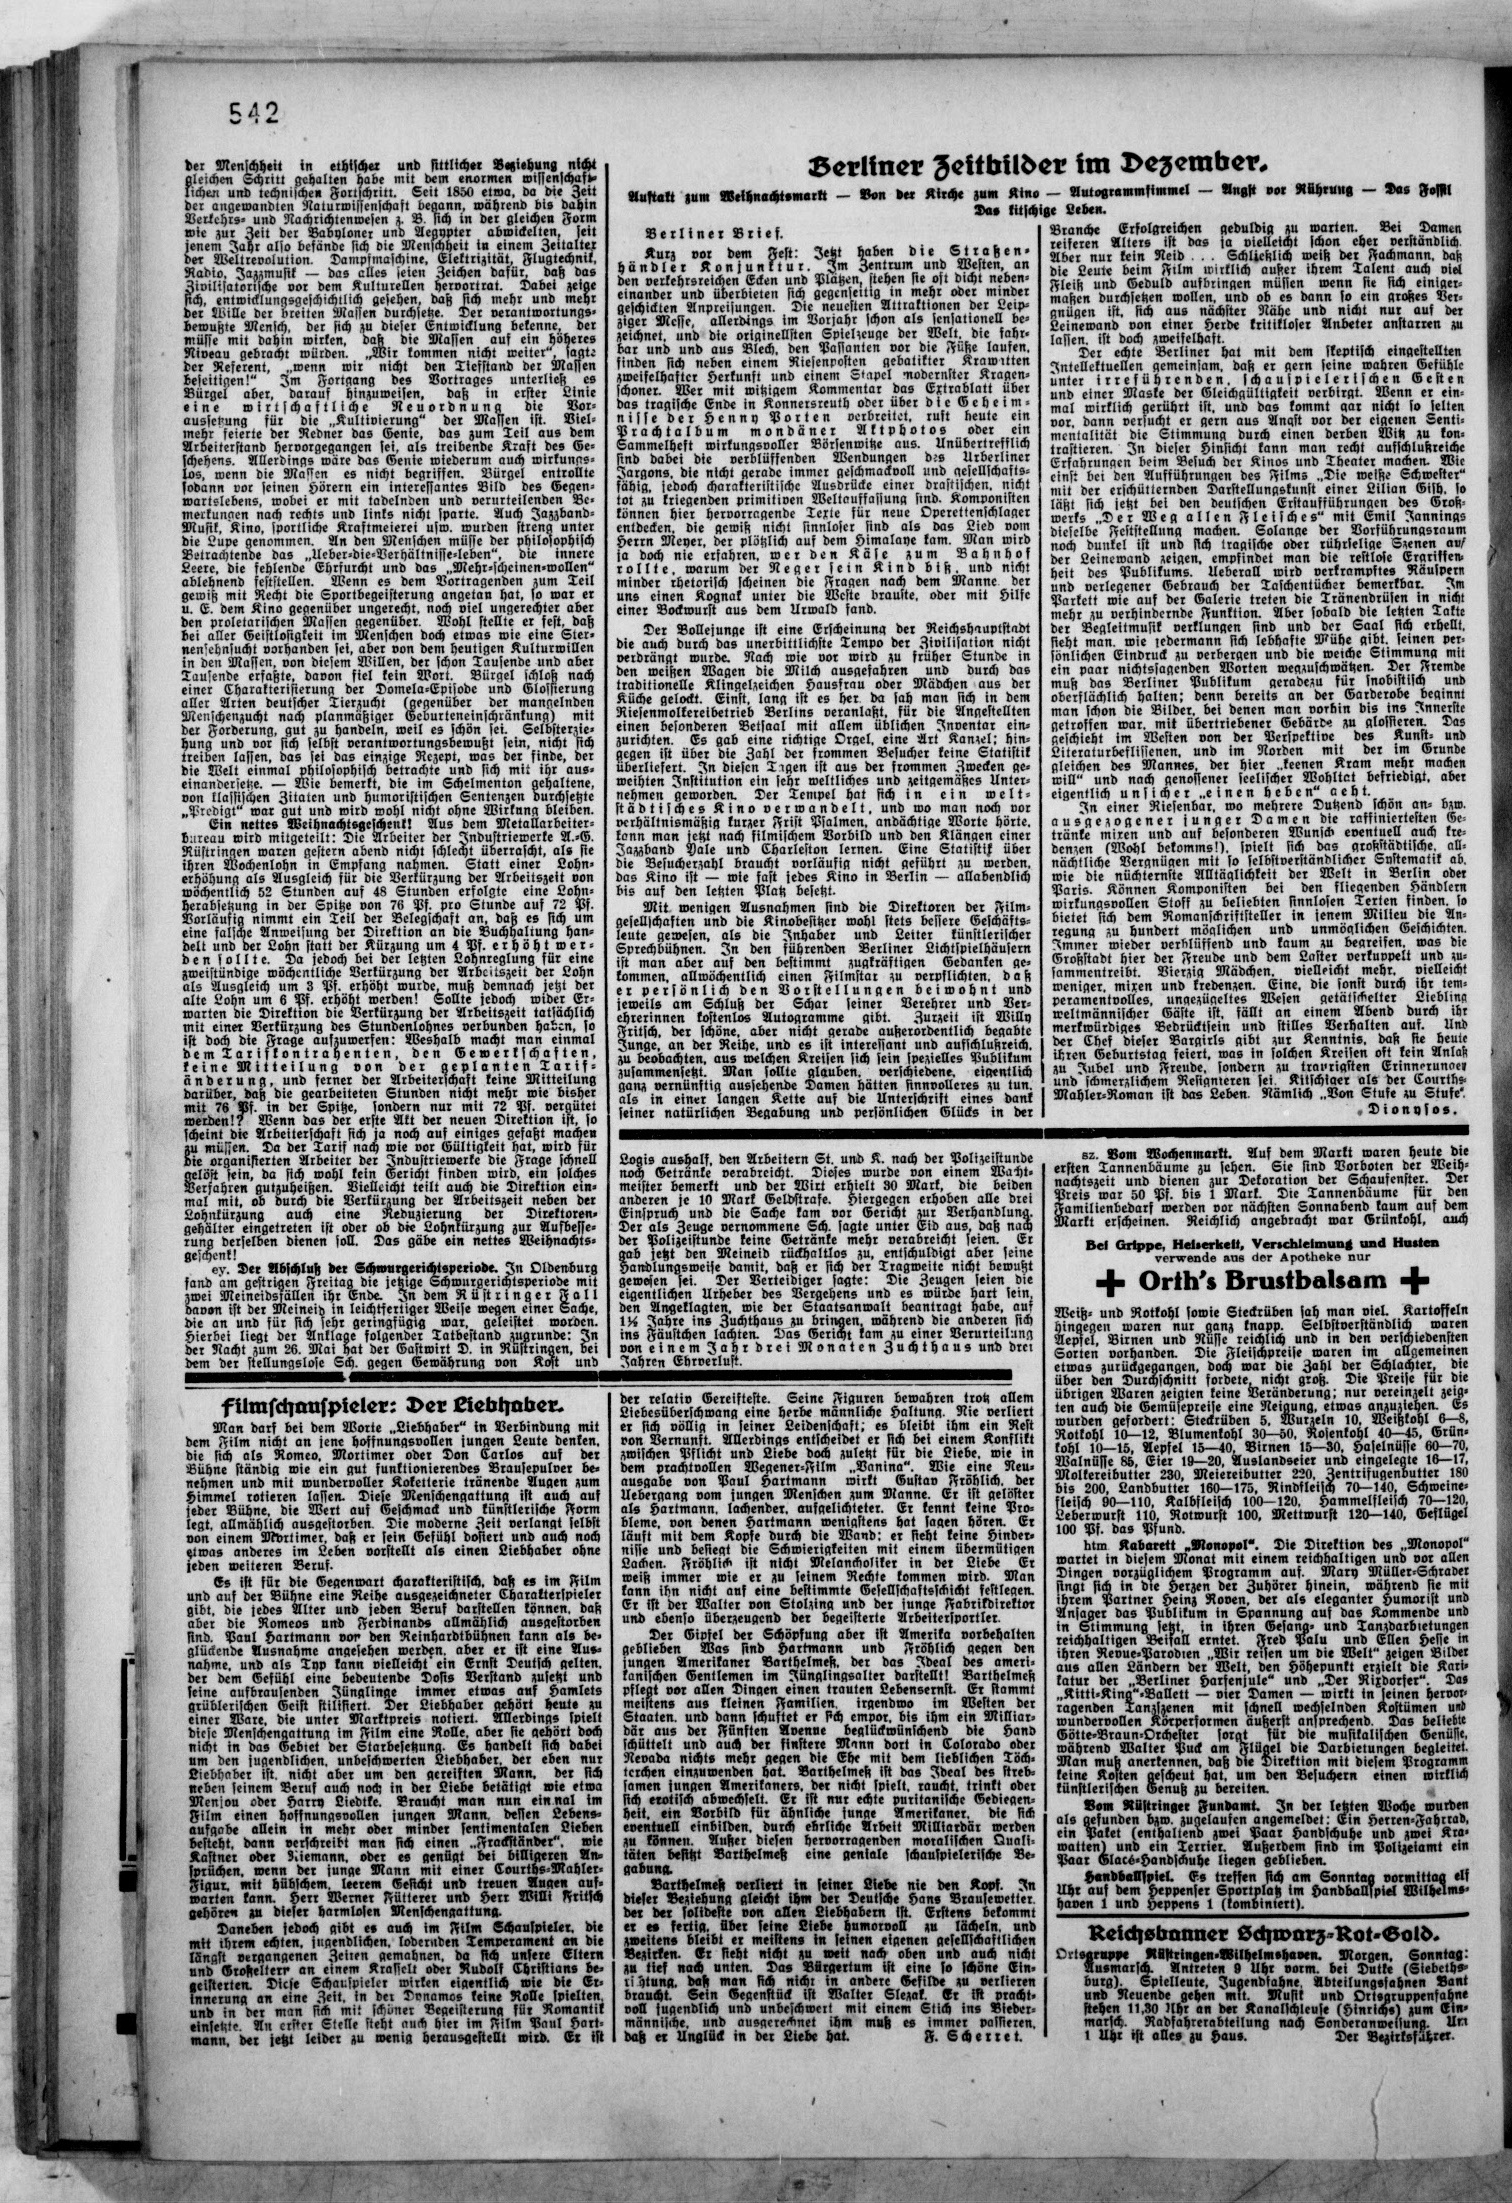 542
der Menschheit in ethischer und sittlicher Beziehung nicht
gleichen Schritt gehalten habe mit dem enormen wissenschaft-
lichen und technischen Fortschritt. Seit 1850 etwa, da die Zeit
der angewandten Naturwissenschaft begann, während bis dahin
Verkehrs- und Nachrichtenwesen z. B. sich in der gleichen Form
wie zur Zeit der Babyloner und Aegypter abwickelten, seit
jenem Jahr also befände sich die Menschheit in einem Zeitalter
der Weltrevolution. Dampfmaschine, Elektrizität, Flugtechnik,
Radio, Jazzmusik — das alles seien Zeichen dafür, daß das
Zivilisatorische vor dem Kulturellen hervortrat. Dabei zeige
sich, entwicklungsgeschichtlich gesehen, daß sich mehr und mehr
der Wille der breiten Massen durchsetze. Der verantwortungs-
bewußte Mensch, der sich zu dieser Entwicklung bekenne, der
müsse mit dahin wirken, daß die Massen auf ein höheres
Niveau gebracht würden. „Wir kommen nicht weiter“, sagte
der Referent, „wenn wir nicht den Tiefstand der Massen
beseitigen!“ Im Fortgang des Vortrages unterließ es
Bürgel aber, darauf hinzuweisen, daß in erster Linie
eine wirtschaftliche Neuordnung die Vor-
aussetzung für die „Kultivierung“ der Massen ist. Viel-
mehr feierte der Redner das Genie, das zum Teil aus dem
Arbeiterstand hervorgegangen sei, als treibende Kraft des Ge-
schehens. Allerdings wäre das Genie wiederum auch wirkungs-
los, wenn die Massen es nicht begriffen. Bürgel entrollte
sodann vor seinen Hörern ein interessantes Bild des Gegen-
wartslebens, wobei er mit tadelnden und verurteilenden Be-
merkungen nach rechts und links nicht sparte. Auch Jazzband-
Musik, Kino, sportliche Kraftmeierei usw. wurden streng unter
die Lupe genommen. An den Menschen müsse der philosophisch
Betrachtende das „Ueber-die-Verhältnisse-leben“, die innere
Leere, die fehlende Ehrfurcht und das „Mehr-scheinen-wollen“
ablehnend feststellen. Wenn es dem Vortragenden zum Teil
gewiß mit Recht die Sportbegeisterung angetan hat, so war er
u. E. dem Kino gegenüber ungerecht, noch viel ungerechter aber
den proletarischen Massen gegenüber. Wohl stellte er fest, daß
bei aller Geistlosigkeit im Menschen doch etwas wie eine Ster-
nensehnsucht vorhanden sei, aber von dem heutigen Kulturwillen
in den Massen, von diesem Willen, der schon Tausende und aber
Tausende erfaßte, davon fiel kein Wort. Bürgel schloß nach
einer Charakterisierung der Domela-Episode und Glossierung
aller Arten deutscher Tierzucht (gegenüber der mangelnden
Menschenzucht nach planmäßiger Geburteneinschränkung) mit
der Forderung, gut zu handeln, weil es schön sei. Selbsterzie-
hung und vor sich selbst verantwortungsbewußt sein, nicht sich
treiben lassen, das sei das einzige Rezept, was der finde, der
die Welt einmal philosophisch betrachte und sich mit ihr aus-
einandersetze. — Wie bemerkt, die im Schelmenton gehaltene,
von klassischen Zitaten und humoristischen Sentenzen durchsetzte
„Predigt“ war gut und wird wohl nicht ohne Wirkung bleiben.
Ein nettes Weihnachtsgeschenk! Aus dem Metallarbeiter-
bureau wird mitgeteilt: Die Arbeiter der Industriewerke A.-G.
Rüstringen waren gestern abend nicht schlecht überrascht, als sie
ihren Wochenlohn in Empfang nahmen. Statt einer Lohn-
erhöhung als Ausgleich für die Verkürzung der Arbeitszeit von
wöchentlich 52 Stunden auf 48 Stunden erfolgte eine Lohn-
herabsetzung in der Spitze von 76 Pf. pro Stunde auf 72 Pf.
Vorläufig nimmt ein Teil der Belegschaft an, daß es sich um
eine falsche Anweisung der Direktion an die Buchhaltung han-
delt und der Lohn statt der Kürzung um 4 Pf. erhöht wer-
den sollte. Da jedoch bei der letzten Lohnreglung für eine
zweistündige wöchentliche Verkürzung der Arbeitszeit der Lohn
als Ausgleich um 3 Pf. erhöht wurde, muß demnach jetzt der
alte Lohn um 6 Pf. erhöht werden! Sollte jedoch wider Er-
warten die Direktion die Verkürzung der Arbeitszeit tatsächlich
mit einer Verkürzung des Stundenlohnes verbunden haben, so
ist doch die Frage aufzuwerfen: Weshalb macht man einmal
dem Tarifkontrahenten, den Gewerkschaften,
keine Mitteilung von der geplanten Tarif-
änderung, und ferner der Arbeiterschaft keine Mitteilung
darüber, daß die gearbeiteten Stunden nicht mehr wie bisher
mit 76 Pf. in der Spitze, sondern nur mit 72 Pf. vergütet
werden!? Wenn das der erste Akt der neuen Direktion ist, so
scheint die Arbeiterschaft sich ja noch auf einiges gefaßt machen
zu müssen. Da der Tarif nach wie vor Gültigkeit hat, wird für
die organisierten Arbeiter der Industriewerke die Frage schnell
gelöst sein, da sich wohl kein Gericht finden wird, ein solches
Verfahren gutzuheißen. Vielleicht teilt auch die Direktion ein-
mal mit, ob durch die Verkürzung der Arbeitszeit neben der
Lohnkürzung auch eine Reduzierung der Direktoren-
gehälter eingetreten ist oder ob die Lohnkürzung zur Aufbesse-
rung derselben dienen soll. Das gäbe ein nettes Weihnachts-
geschenk!
ey. Der Abschluß der Schwurgerichtsperiode. In Oldenburg
fand am gestrigen Freitag die jetzige Schwurgerichtsperiode mit
zwei Meineidsfällen ihr Ende. In dem Rüstringer Fall
davon ist der Meineid in leichtfertiger Weise wegen einer Sache,
die an und für sich sehr geringfügig war, geleistet worden.
Hierbei liegt der Anklage folgender Tatbestand zugrunde: In
der Nacht zum 26. Mai hat der Gastwirt D. in Rüstringen, bei
dem der stellungslose Sch. gegen Gewährung von Kost und
Berliner Zeitbilder im Dezember.
Auftakt zum Weihnachtsmarkt — Von der Kirche zum Kino — Autogrammfimmel — Angst vor Rührung — Das Fossil
Das kitschige Leben.
Berliner Brief.
Kurz vor dem Fest: Jetzt haben die Straßen-
händler Konjunktur. Im Zentrum und Westen, an
den verkehrsreichen Ecken und Plätzen, stehen sie oft dicht neben-
einander und überbieten sich gegenseitig in mehr oder minder
geschickten Anpreisungen. Die neuesten Attraktionen der Leip-
ziger Messe, allerdings im Vorjahr schon als sensationell be-
zeichnet, und die originellsten Spielzeuge der Welt, die fahr-
bar und und aus Blech, den Passanten vor die Füße laufen,
finden sich neben einem Riesenposten gebatikter Krawatten
zweifelhafter Herkunft und einem Stapel modernster Kragen-
schoner. Wer mit witzigem Kommentar das Extrablatt über
das tragische Ende in Konnersreuth oder über die Geheim-
nisse der Henny Porten verbreitet, ruft heute ein
Prachtalbum mondäner Aktphotos oder ein
Sammelheft wirkungsvoller Börsenwitze aus. Unübertrefflich
sind dabei die verblüffenden Wendungen des Urberliner
Jargons, die nicht gerade immer geschmackvoll und gesellschafts-
fähig, jedoch charakteristische Ausdrücke einer drastischen, nicht
tot zu kriegenden primitiven Weltauffassung sind. Komponisten
können hier hervorragende Texte für neue Operettenschlager
entdecken, die gewiß nicht sinnloser sind als das Lied vom
Herrn Meyer, der plötzlich auf dem Himalaye kam. Man wird
ja doch nie erfahren, wer den Käse zum Bahnhof
rollte, warum der Neger sein Kind biß, und nicht
minder rhetorisch scheinen die Fragen nach dem Manne der
uns einen Kognak unter die Weste brauste, oder mit Hilfe
einer Bockwurst aus dem Urwald fand.
Der Bollejunge ist eine Erscheinung der Reichshauptstadt
die auch durch das unerbittlichste Tempo der Zivilisation nicht
verdrängt wurde. Nach wie vor wird zu früher Stunde in
den weißen Wagen die Milch ausgefahren und durch das
traditionelle Klingelzeichen Hausfrau oder Mädchen aus der
Küche gelockt. Einst, lang ist es her, da sah man sich in dem
Riesenmolkereibetrieb Berlins veranlaßt, für die Angestellten
einen besonderen Betsaal mit allem üblichen Inventar ein-
zurichten. Es gab eine richtige Orgel, eine Art Kanzel; hin-
gegen ist über die Zahl der frommen Besucher keine Statistik
überliefert. In diesen Tagen ist aus der frommen Zwecken ge-
weihten Institution ein sehr weltliches und zeitgemäßes Unter-
nehmen geworden. Der Tempel hat sich in ein welt-
städtisches Kino verwandelt, und wo man noch vor
verhältnismäßig kurzer Frist Psalmen, andächtige Worte hörte,
kann man jetzt nach filmischem Vorbild und den Klängen einer
Jazzband Vale und Charleston lernen. Eine Statistik über
die Besucherzahl braucht vorläufig nicht geführt zu werden,
das Kino ist — wie fast jedes Kino in Berlin — allabendlich
bis auf den letzten Platz besetzt.
Mit wenigen Ausnahmen sind die Direktoren der Film-
gesellschaften und die Kinobesitzer wohl stets bessere Geschäfts-
leute gewesen, als die Inhaber und Leiter künstlerischer
Sprechbühnen. In den führenden Berliner Lichtspielhäusern
ist man aber auf den bestimmt zugkräftigen Gedanken ge-
kommen, allwöchentlich einen Filmstar zu verpflichten, daß
er persönlich den Vorstellungen beiwohnt und
jeweils am Schluß der Schar seiner Verehrer und Ver-
ehrerinnen kostenlos Autogramme gibt. Zurzeit ist Willy
Fritsch, der schöne, aber nicht gerade außerordentlich begabte
Junge, an der Reihe, und es ist interessant und aufschlußreich,
zu beobachten, aus welchen Kreisen sich sein spezielles Publikum
zusammensetzt. Man sollte glauben, verschiedene, eigentlich
ganz vernünftig aussehende Damen hätten sinnvolleres zu tun,
als in einer langen Kette auf die Unterschrift eines dank
seiner natürlichen Begabung und persönlichen Glücks in der
Branche Erfolgreichen geduldig zu warten. Bei Damen
reiferen Alters ist das ja vielleicht schon eher verständlich.
Aber nur kein Neid . . . Schließlich weiß der Fachmann, daß
die Leute beim Film wirklich außer ihrem Talent auch viel
Fleiß und Geduld aufbringen müssen wenn sie sich einiger-
maßen durchsetzen wollen, und ob es dann so ein großes Ver-
gnügen ist, sich aus nächster Nähe und nicht nur auf der
Leinewand von einer Herde kritikloser Anbeter anstarren zu
lassen, ist doch zweifelhaft.
Der echte Berliner hat mit dem skeptisch eingestellten
Intellektuellen gemeinsam, daß er gern seine wahren Gefühle
unter irreführenden, schauspielerischen Gesten
und einer Maske der Gleichgültigkeit verbirgt. Wenn er ein-
mal wirklich gerührt ist, und das kommt gar nicht so selten
vor, dann versucht er gern aus Angst vor der eigenen Senti-
mentalität die Stimmung durch einen derben Witz zu kon-
trastieren. In dieser Hinsicht kann man recht aufschlußreiche
Erfahrungen beim Besuch der Kinos und Theater machen. Wie
einst bei den Aufführungen des Films „Die weiße Schwester“
mit der erschütternden Darstellungskunst einer Lilian Gish, so
läßt sich jetzt bei den deutschen Erstaufführungen des Groß-
werks „Der Weg allen Fleisches“ mit Emil Jannings
dieselbe Feststellung machen. Solange der Vorführungsraum
noch dunkel ist und sich tragische oder rührselige Szenen auf
der Leinewand zeigen, empfindet man die restlose Ergriffen-
heit des Publikums. Ueberall wird verkrampftes Räuspern
und verlegener Gebrauch der Taschentücher bemerkbar. Im
Parkett wie auf der Galerie treten die Tränendrüsen in nicht
mehr zu verhindernde Funktion. Aber sobald die letzten Takte
der Begleitmusik verklungen sind und der Saal sich erhellt,
sieht man, wie jedermann sich lebhafte Mühe gibt, seinen per-
sönlichen Eindruck zu verbergen und die weiche Stimmung mit
ein paar nichtssagenden Worten wegzuschwätzen. Der Fremde
muß das Berliner Publikum geradezu für snobistisch und
oberflächlich halten; denn bereits an der Garderobe beginnt
man schon die Bilder, bei denen man vorhin bis ins Innerste
getroffen war, mit übertriebener Gebärde zu glossieren. Das
geschieht im Westen von der Perspektive des Kunst- und
Literaturbeflissenen, und im Norden mit der im Grunde
gleichen des Mannes, der hier „keenen Kram mehr machen
will“ und nach genossener seelischer Wohltat befriedigt, aber
eigentlich unsicher „einen heben“ geht.
In einer Riesenbar, wo mehrere Dutzend schön an- bzw.
ausgezogener junger Damen die raffiniertesten Ge-
tränke mixen und auf besonderen Wunsch eventuell auch kre-
denzen (Wohl bekomms!), spielt sich das großstädtische, all-
nächtliche Vergnügen mit so selbstverständlicher Systematik ab,
wie die nüchternste Alltäglichkeit der Welt in Berlin oder
Paris. Können Komponisten bei den fliegenden Händlern
wirkungsvollen Stoff zu beliebten sinnlosen Texten finden, so
bietet sich dem Romanschriftsteller in jenem Milieu die An-
regung zu hundert möglichen und unmöglichen Geschichten.
Immer wieder verblüffend und kaum zu begreifen, was die
Großstadt hier der Freude und dem Laster verkuppelt und zu-
sammentreibt. Vierzig Mädchen, vielleicht mehr, vielleicht
weniger, mixen und kredenzen. Eine, die sonst durch ihr tem-
peramentvolles, ungezügeltes Wesen getätschelter Liebling
weltmännischer Gäste ist, fällt an einem Abend durch ihr
merkwürdiges Bedrücktsein und stilles Verhalten auf. Und
der Chef dieser Bargirls gibt zur Kenntnis, daß sie heute
ihren Geburtstag feiert, was in solchen Kreisen oft kein Anlaß
zu Jubel und Freude, sondern zu traurigsten Erinnerungen
und schmerzlichem Resignieren sei. Kitschiger als der Courths-
Mahler-Roman ist das Leben. Nämlich „Von Stufe zu Stufe“.
Dionysos.
Logis aushalf, den Arbeitern St. und K. nach der Polizeistunde
noch Getränke verabreicht. Dieses wurde von einem Wacht-
meister bemerkt und der Wirt erhielt 30 Mark, die beiden
anderen je 10 Mark Geldstrafe. Hiergegen erhoben alle drei
Einspruch und die Sache kam vor Gericht zur Verhandlung.
Der als Zeuge vernommene Sch. sagte unter Eid aus, daß nach
der Polizeistunde keine Getränke mehr verabreicht seien. Er
gab jetzt den Meineid rückhaltlos zu, entschuldigt aber seine
Handlungsweise damit, daß er sich der Tragweite nicht bewußt
gewesen sei. Der Verteidiger sagte: Die Zeugen seien die
eigentlichen Urheber des Vergehens und es würde hart sein,
den Angeklagten, wie der Staatsanwalt beantragt habe, auf
1¼ Jahre ins Zuchthaus zu bringen, während die anderen sich
ins Fäustchen lachten. Das Gericht kam zu einer Verurteilung
von einem Jahr drei Monaten Zuchthaus und drei
Jahren Ehrverlust.
sz. Vom Wochenmarkt. Auf dem Markt waren heute die
ersten Tannenbäume zu sehen. Sie sind Vorboten der Weih-
nachtszeit und dienen zur Dekoration der Schaufenster. Der
Preis war 50 Pf. bis 1 Mark. Die Tannenbäume für den
Familienbedarf werden vor nächsten Sonnabend kaum auf dem
Markt erscheinen. Reichlich angebracht war Grünkohl, auch
Bei Grippe, Heiserkeit, Verschleimung und Husten
verwende aus der Apotheke nur
+ Orth's Brustbalsam +
Weiß- und Rotkohl sowie Steckrüben sah man viel. Kartoffeln
hingegen waren nur ganz knapp. Selbstverständlich waren
Aepfel, Birnen und Nüsse reichlich und in den verschiedensten
Sorten vorhanden. Die Fleischpreise waren im allgemeinen
etwas zurückgegangen, doch war die Zahl der Schlachter, die
über den Durchschnitt fordete, nicht groß. Die Preise für die
übrigen Waren zeigten keine Veränderung; nur vereinzelt zeig-
ten auch die Gemüsepreise eine Neigung, etwas anzuziehen. Es
wurden gefordert: Steckrüben 5, Wurzeln 10, Weißkohl 6—8,
Rotkohl 10—12, Blumenkohl 30—50, Rosenkohl 40—45, Grün-
kohl 10—15, Aepfel 15—40, Birnen 15—30, Haselnüsse 60—70,
Walnüsse 85, Eier 19—20, Auslandseier und eingelegte 16—17,
Molkereibutter 230, Meiereibutter 220, Zentrifugenbutter 180
bis 200, Landbutter 160—175, Rindfleisch 70—140, Schweine-
fleisch 90—110, Kalbfleisch 100—120, Hammelfleisch 70—120,
Leberwurst 110, Rotwurst 100, Mettwurst 120—140, Geflügel
100 Pf. das Pfund.
htm. Kabarett „Monopol“. Die Direktion des „Monopol“
wartet in diesem Monat mit einem reichhaltigen und vor allen
Dingen vorzüglichem Programm auf. Mary Müller-Schrader
singt sich in die Herzen der Zuhörer hinein, während sie mit
ihrem Partner Heinz Roven, der als eleganter Humorist und
Ansager das Publikum in Spannung auf das Kommende und
in Stimmung setzt, in ihren Gesang- und Tanzdarbietungen
reichhaltigen Beifall erntet. Fred Palu und Ellen Hesse in
ihren Revue-Parodien „Wir reisen um die Welt“ zeigen Bilder
aus allen Ländern der Welt, den Höhepunkt erzielt die Kari-
katur der „Berliner Harfenjule“ und „Der Rixdorfer“. Das
„Kitti-King“-Ballett — vier Damen — wirkt in seinen hervor-
ragenden Tanzszenen mit schnell wechselnden Kostümen und
wundervollen Körperformen äußerst ansprechend. Das beliebte
Götte-Braun-Orchester sorgt für die musikalischen Genüsse,
während Walter Puck am Flügel die Darbietungen begleitet.
Man muß anerkennen, daß die Direktion mit diesem Programm
keine Kosten gescheut hat, um den Besuchern einen wirklich
künstlerischen Genuß zu bereiten.
Vom Rüstringer Fundamt. In der letzten Woche wurden
als gefunden bzw. zugelaufen angemeldet: Ein Herren-Fahrrad,
ein Paket (enthaltend zwei Paar Handschuhe und zwei Kra-
watten) und ein Terrier. Außerdem sind im Polizeiamt ein
Paar Glacé-Handschuhe liegen geblieben.
Handballspiel. Es treffen sich am Sonntag vormittag elf
Uhr auf dem Heppenser Sportplatz im Handballspiel Wilhelms-
haven 1 und Heppens 1 (kombiniert).
Reichsbanner Schwarz-Rot-Gold.
Ortsgruppe Rüstringen-Wilhelmshaven. Morgen, Sonntag:
Ausmarsch. Antreten 9 Uhr vorm. bei Dutke (Siebeths-
burg). Spielleute, Jugendfahne, Abteilungsfahnen Bant
und Neuende gehen mit. Musik und Ortsgruppenfahne
stehen 11,30 Uhr an der Kanalschleuse (Hinrichs) zum Ein-
marsch. Radfahrerabteilung nach Sonderanweisung. Um
1 Uhr ist alles zu Haus. Der Bezirksführer.
Filmschauspieler: Der Liebhaber.
Man darf bei dem Worte „Liebhaber“ in Verbindung mit
dem Film nicht an jene hoffnungsvollen jungen Leute denken,
die sich als Romeo, Mortimer oder Don Carlos auf der
Bühne ständig wie ein gut funktionierendes Brausepulver be-
nehmen und mit wundervoller Koketterie tränende Augen zum
Himmel rotieren lassen. Diese Menschengattung ist auch auf
jeder Bühne, die Wert auf Geschmack und künstlerische Form
legt, allmählich ausgestorben. Die moderne Zeit verlangt selbst
von einem Mortimer, daß er sein Gefühl dosiert und auch noch
etwas anderes im Leben vorstellt als einen Liebhaber ohne
jeden weiteren Beruf.
Es ist für die Gegenwart charakteristisch, daß es im Film
und auf der Bühne eine Reihe ausgezeichneter Charakterspieler
gibt, die jedes Alter und jeden Beruf darstellen können, daß
aber die Romeos und Ferdinands allmählich ausgestorben
sind. Paul Hartmann von den Reinhardtbühnen kann als be-
glückende Ausnahme angesehen werden, aber er ist eine Aus-
nahme, und als Typ kann vielleicht ein Ernst Deutsch gelten,
der dem Gefühl eine bedeutende Dosis Verstand zusetzt und
seine aufbrausenden Jünglinge immer etwas auf Hamlets
grüblerischen Geist stilisiert. Der Liebhaber gehört heute zu
einer Ware, die unter Marktpreis notiert. Allerdings spielt
diese Menschengattung im Film eine Rolle, aber sie gehört doch
nicht in das Gebiet der Starbesetzung. Es handelt sich dabei
um den jugendlichen, unbeschwerten Liebhaber, der eben nur
Liebhaber ist, nicht aber um den gereiften Mann, der sich
neben seinem Beruf auch noch in der Liebe betätigt wie etwa
Menjou oder Harry Liedtke. Braucht man nun einmal im
Film einen hoffnungsvollen jungen Mann, dessen Lebens-
aufgabe allein in mehr oder minder sentimentalen Lieben
besteht, dann verschreibt man sich einen „Frackständer“, wie
Kastner oder Riemann, oder es genügt bei billigeren An-
sprüchen, wenn der junge Mann mit einer Courths-Mahler-
Figur, mit hübschem, leerem Gesicht und treuen Augen auf-
warten kann. Herr Werner Fütterer und Herr Willi Fritsch
gehören zu dieser harmlosen Menschengattung.
Daneben jedoch gibt es auch im Film Schauspieler, die
mit ihrem echten, jugendlichen, lodernden Temperament an die
längst vergangenen Zeiten gemahnen, da sich unsere Eltern
und Großeltern an einem Krasselt oder Rudolf Christians be-
geisterten. Diese Schauspieler wirken eigentlich wie die Er-
innerung an eine Zeit, in der Dynamos keine Rolle spielten,
und in der man sich mit schöner Begeisterung für Romantik
einsetzte. An erster Stelle steht auch hier im Film Paul Hart-
mann, der jetzt leider zu wenig herausgestellt wird. Er ist
der relativ Gereifteste. Seine Figuren bewahren trotz allem
Liebesüberschwang eine herbe männliche Haltung. Nie verliert
er sich völlig in seiner Leidenschaft; es bleibt ihm ein Rest
von Vernunft. Allerdings entscheidet er sich bei einem Konflikt
zwischen Pflicht und Liebe doch zuletzt für die Liebe, wie in
dem prachtvollen Wegener-Film „Vanina“. Wie eine Neu-
ausgabe von Paul Hartmann wirkt Gustav Fröhlich, der
Uebergang vom jungen Menschen zum Manne. Er ist gelöster
als Hartmann, lachender, aufgelichteter. Er kennt keine Pro-
bleme, von denen Hartmann wenigstens hat sagen hören. Er
läuft mit dem Kopfe durch die Wand; er sieht keine Hinder-
nisse und besiegt die Schwierigkeiten mit einem übermütigen
Lachen. Fröhlich ist nicht Melancholiker in der Liebe Er
weiß immer wie er zu seinem Rechte kommen wird. Man
kann ihn nicht auf eine bestimmte Gesellschaftsschicht festlegen.
Er ist der Walter von Stolzing und der junge Fabrikdirektor
und ebenso überzeugend der begeisterte Arbeitersportler.
Der Gipfel der Schöpfung aber ist Amerika vorbehalten
geblieben Was sind Hartmann und Fröhlich gegen den
jungen Amerikaner Barthelmeß, der das Ideal des ameri-
kanischen Gentlemen im Jünglingsalter darstellt! Barthelmeß
pflegt vor allen Dingen einen trauten Lebensernst. Er stammt
meistens aus kleinen Familien, irgendwo im Westen der
Staaten, und dann schuftet er sich empor, bis ihm ein Milliar-
där aus der Fünften Avenue beglückwünschend die Hand
schüttelt und auch der finstere Mann dort in Colorado oder
Nevada nichts mehr gegen die Ehe mit dem lieblichen Töch-
terchen einzuwenden hat. Barthelmeß ist das Ideal des streb-
samen jungen Amerikaners, der nicht spielt, raucht, trinkt oder
sich erotisch abwechselt. Er ist nur echte puritanische Gediegen-
heit, ein Vorbild für ähnliche junge Amerikaner, die sich
eventuell einbilden, durch ehrliche Arbeit Milliardär werden
zu können. Außer diesen hervorragenden moralischen Quali-
täten besitzt Barthelmeß eine geniale schauspielerische Be-
gabung.
Barthelmeß verliert in seiner Liebe nie den Kopf. In
dieser Beziehung gleicht ihm der Deutsche Hans Brausewetter,
der der solideste von allen Liebhabern ist. Erstens bekommt
er es fertig, über seine Liebe humorvoll zu lächeln, und
zweitens bleibt er meistens in seinen eigenen gesellschaftlichen
Bezirken. Er sieht nicht zu weit nach oben und auch nicht
zu tief nach unten. Das Bürgertum ist eine so schöne Ein-
richtung, daß man sich nicht in andere Gefilde zu verlieren
braucht. Sein Gegenstück ist Walter Slezak. Er ist pracht-
voll jugendlich und unbeschwert mit einem Stich ins Bieder-
männische, und ausgerechnet ihm muß es immer passieren,
daß er Unglück in der Liebe hat. F. Scherret.